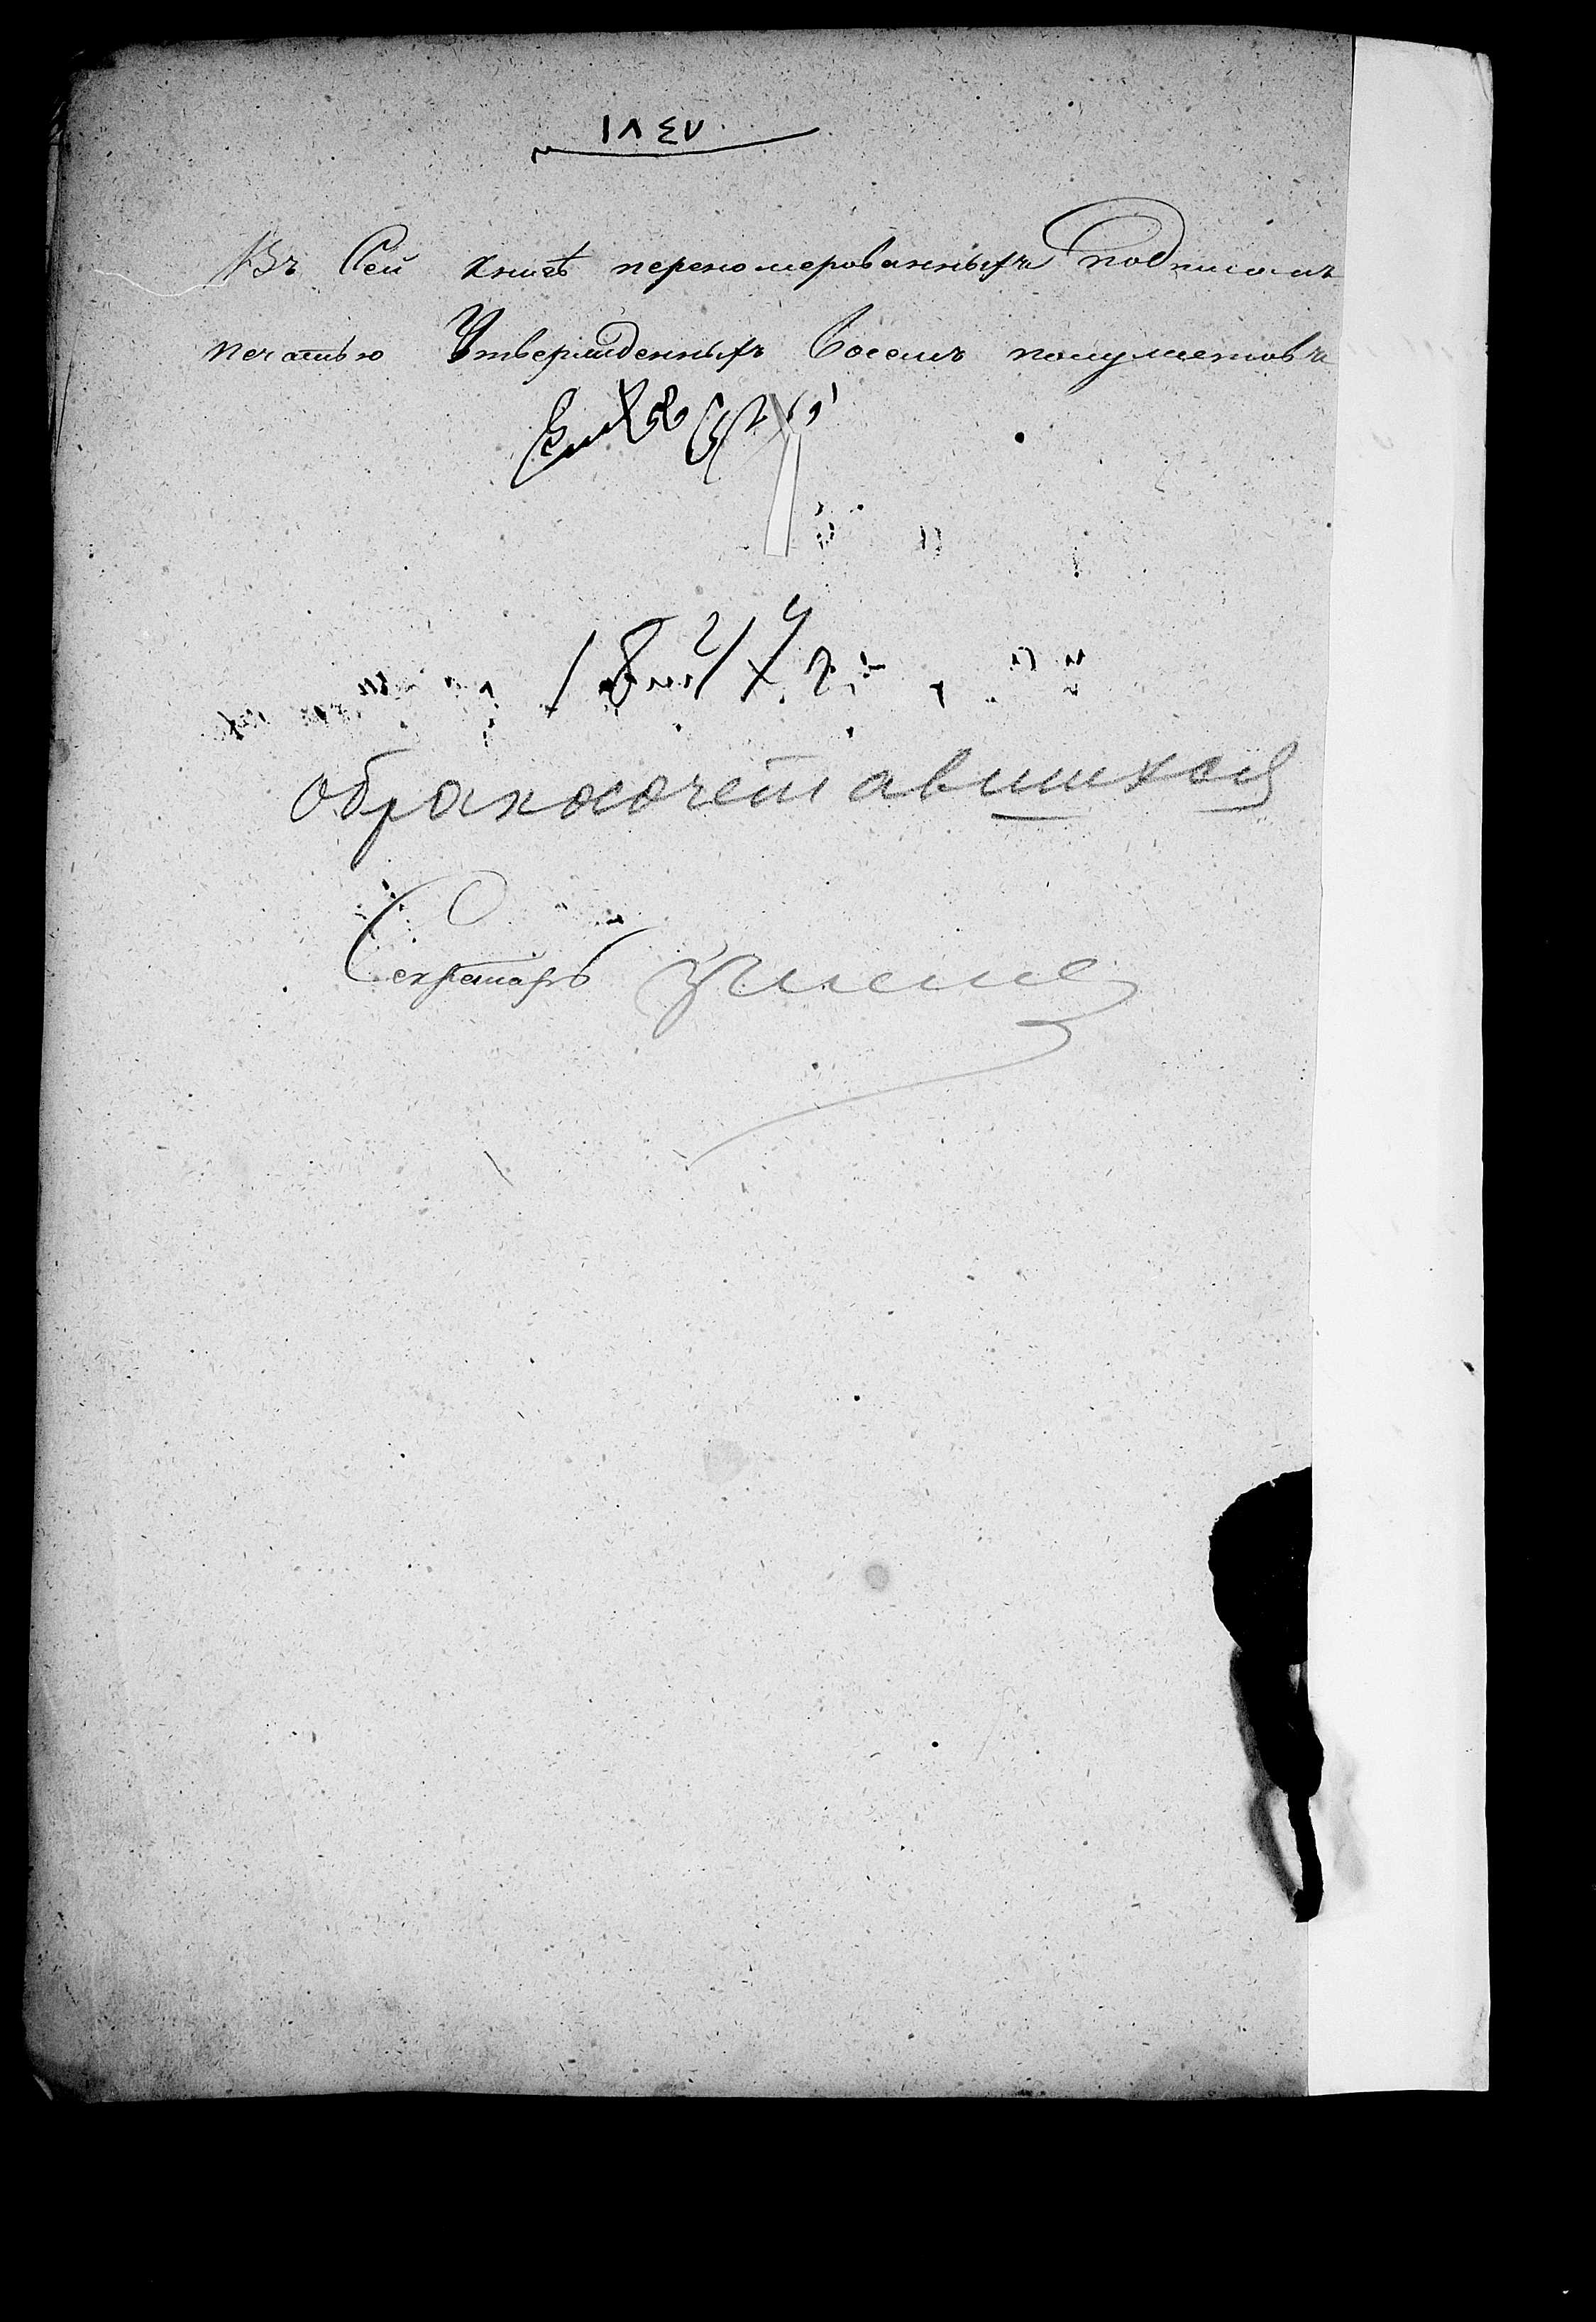 ١٨٤٧
Въ Сей книгѣ перекомерованныхъ Подписомъ
печатью Утвержденныхъ Восемь полулистовъ
1847 г.
обракосочетавшихся
Секретарь